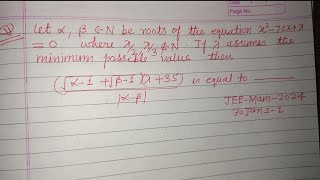 Page No.
Q) Let α, β ∈ N be roots of the equation x²-70x+λ
= 0 where λ/2, λ/3 ∉ N If λ assumes the
minimum possible value then
(√α-1 + √β-1)(λ+35) is equal to
|α-β|
JEE-Main-2024
30Jan S-1